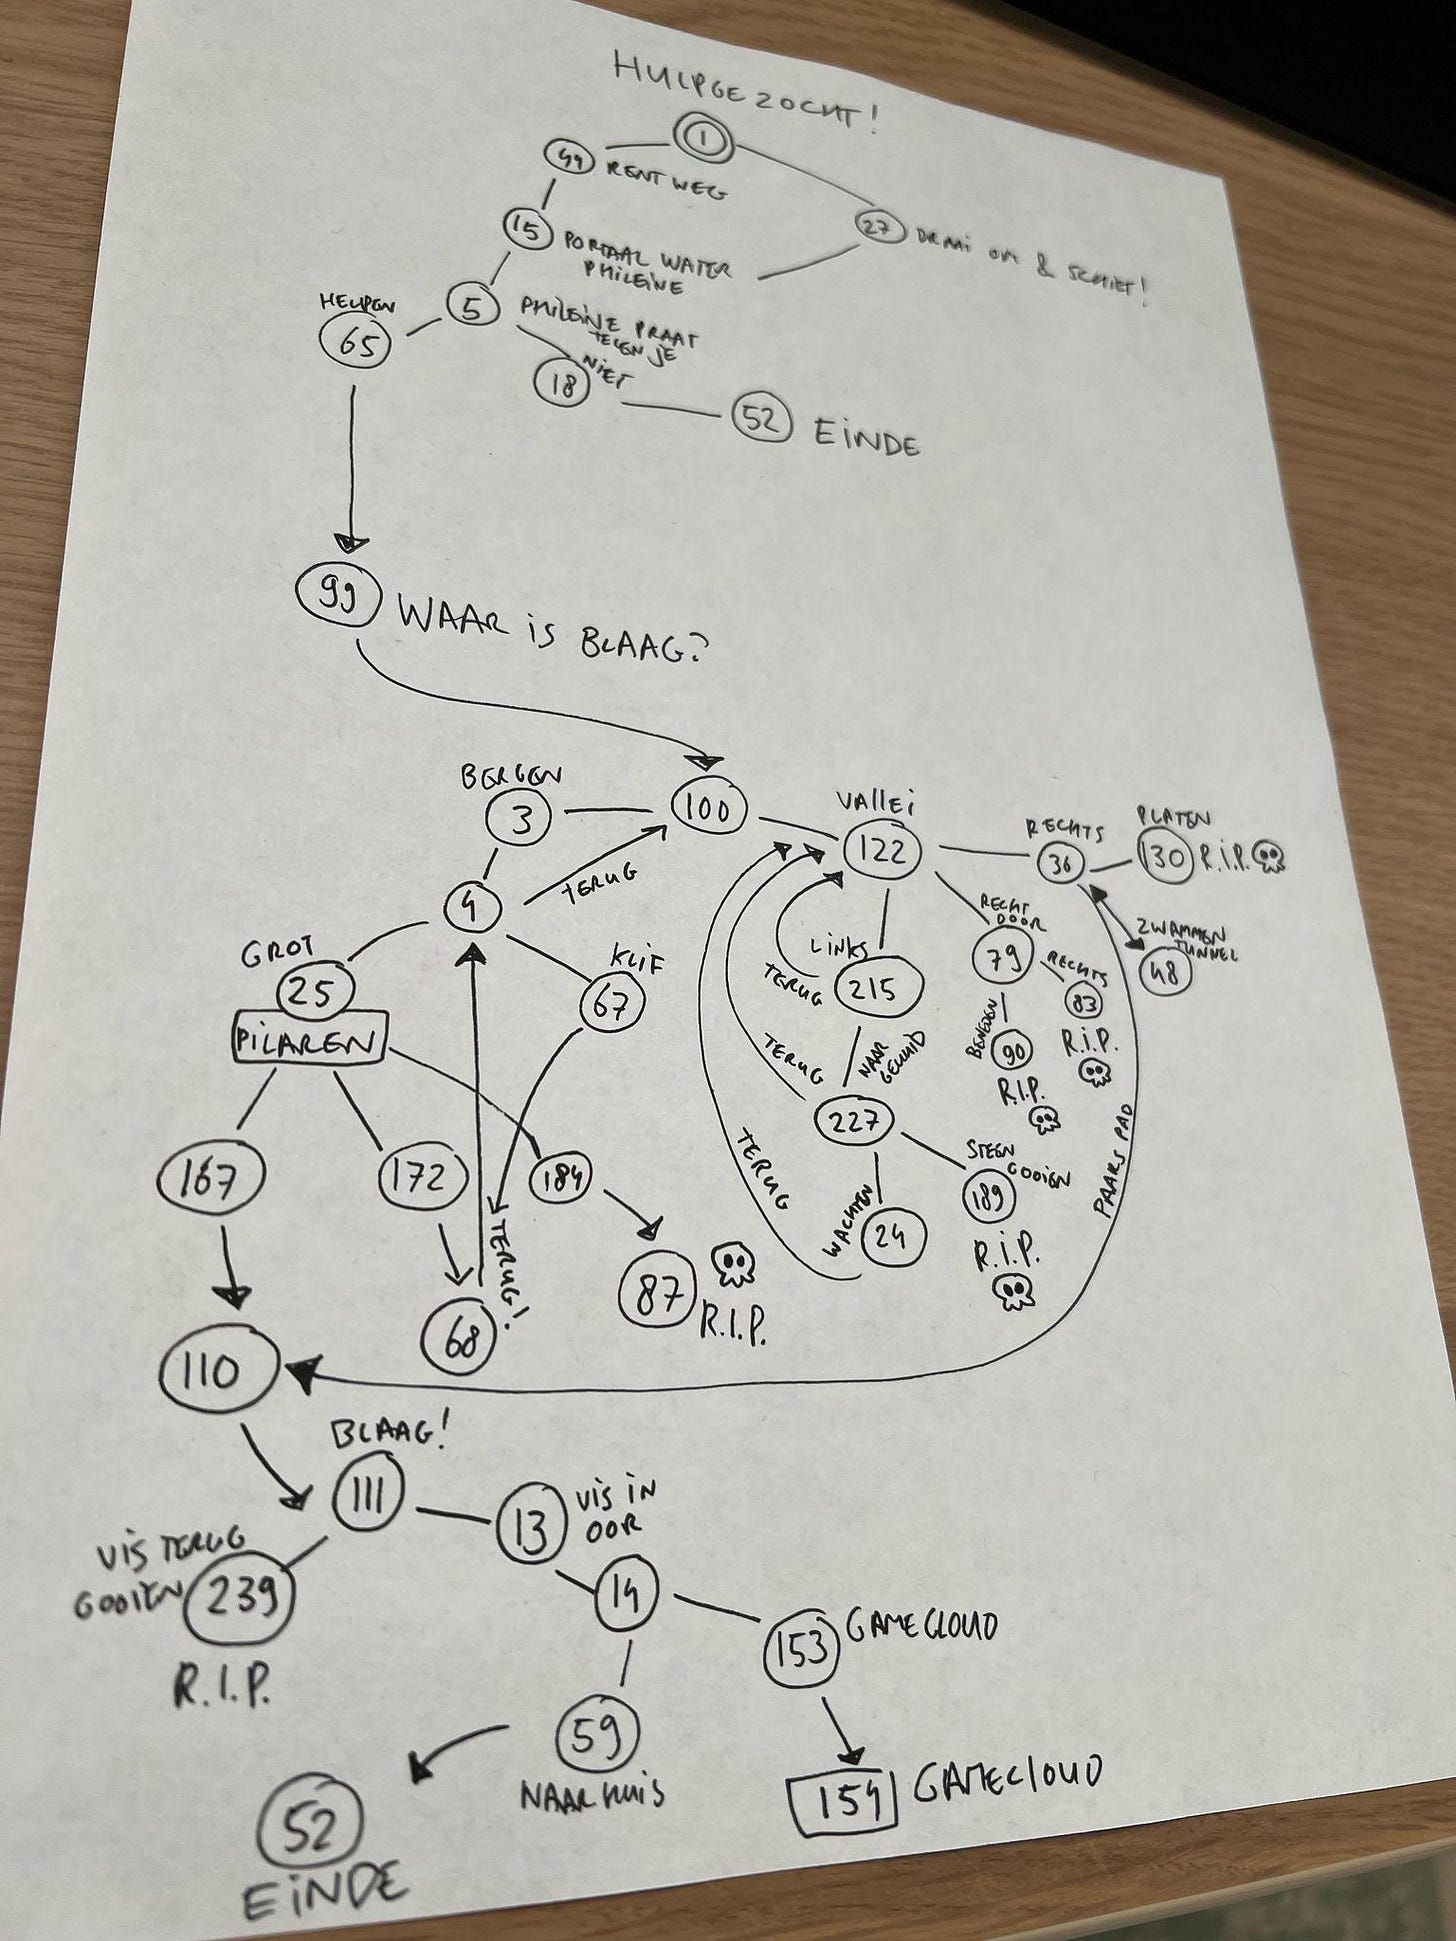 HULP GEZOCHT!
1
44 RENT WEG
27 DRAAI OM & SCHIET!
15 PORTAAL WATER
PHILEINE
HELPEN
65
5 PHILEINE PRAAT
TEGEN JE
NIET
18
52 EINDE
99 WAAR IS BLAAG?
BERGEN
3
100
VALLEI
122
RECHTS
36
PLATEN
130 R.I.P.
TERUG
4
GROT
25
PILAREN
KLIF
67
LINKS
TERUG
215
RECHT
DOOR
79
RECHTS
83
R.I.P.
ZWAMMEN
TUNNEL
48
BENEDEN
90
R.I.P.
TERUG
NAAR
GELUID
227
TERUG
WACHTEN
24
STEEN
GOOIEN
189
R.I.P.
PAARS PAD
167
172
184
TERUG!
68
87
R.I.P.
110
BLAAG!
111
13
VIS IN
OOR
VIS TERUG
GOOIEN 239
R.I.P.
14
153 GAMECLOUD
59
NAAR HUIS
154 GAMECLOUD
52
EINDE